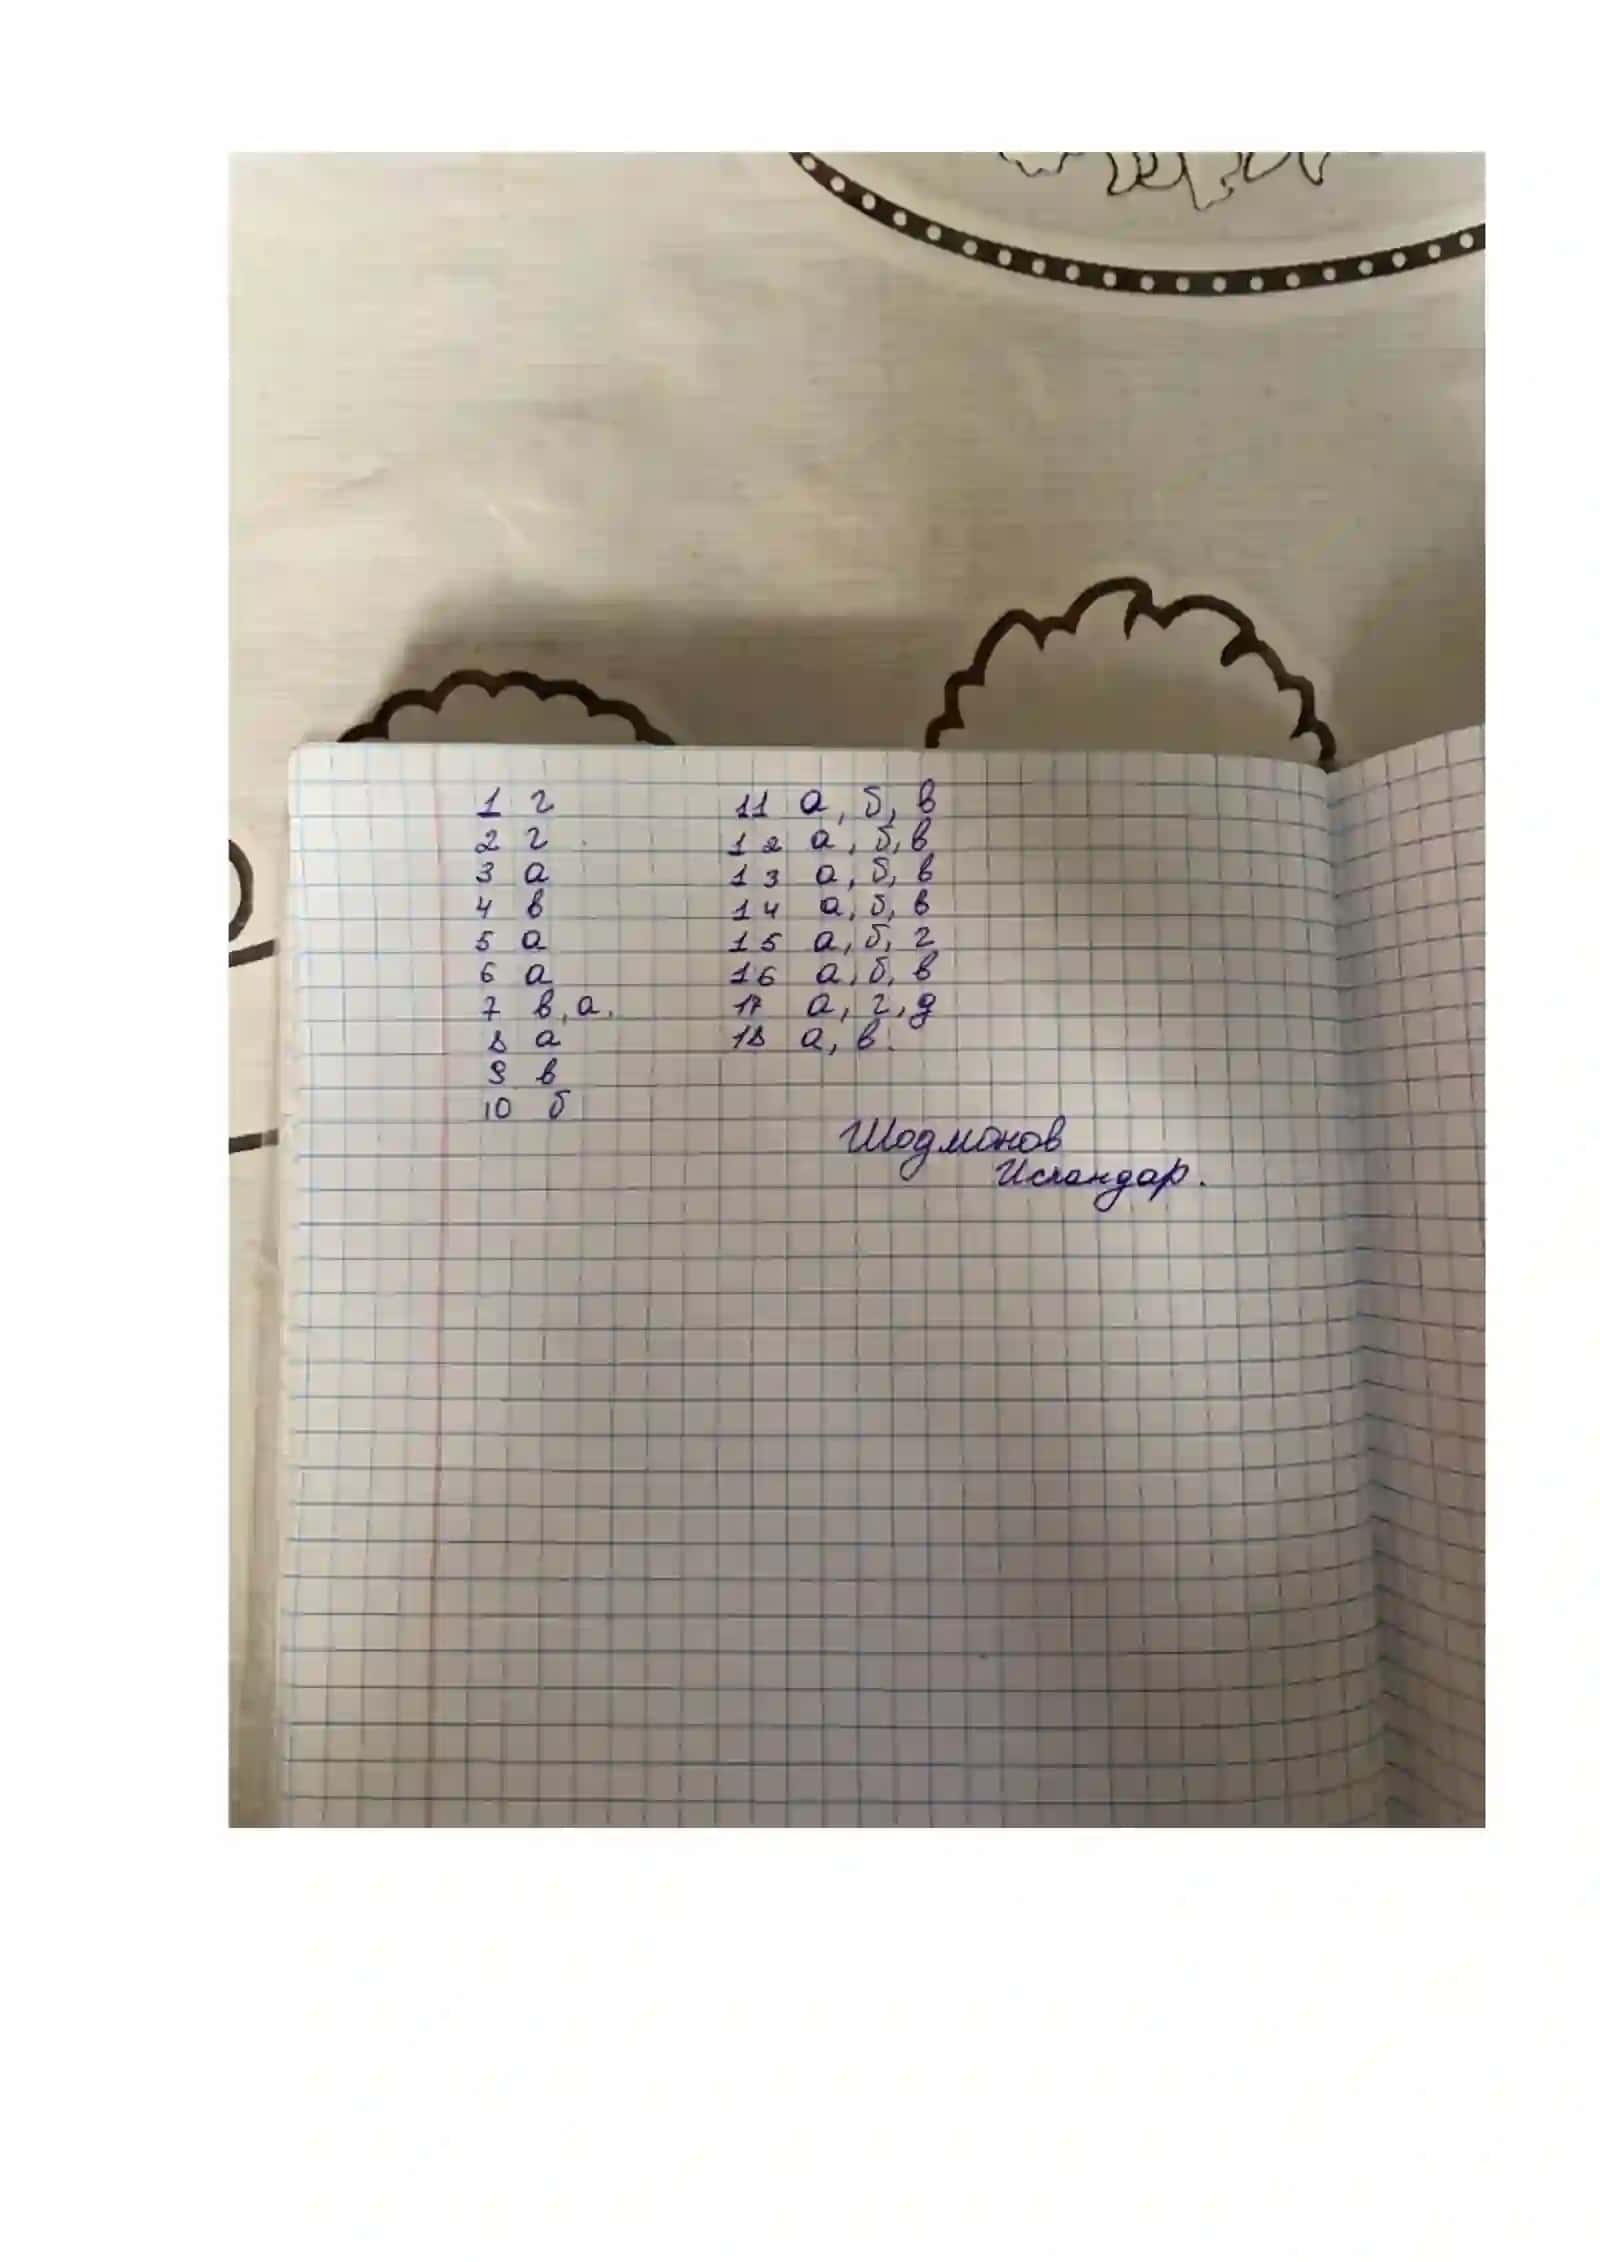 1 г
2 г
3 а
4 в
5 а
6 а
7 в, а.
8 а
9 в
10 б
11 а, б, в
12 а, б, в
13 а, б, в
14 а, б, в
15 а, б, г
16 а, б, в
17 а, г, д
18 а, в.
Шодмонов
Искандар.